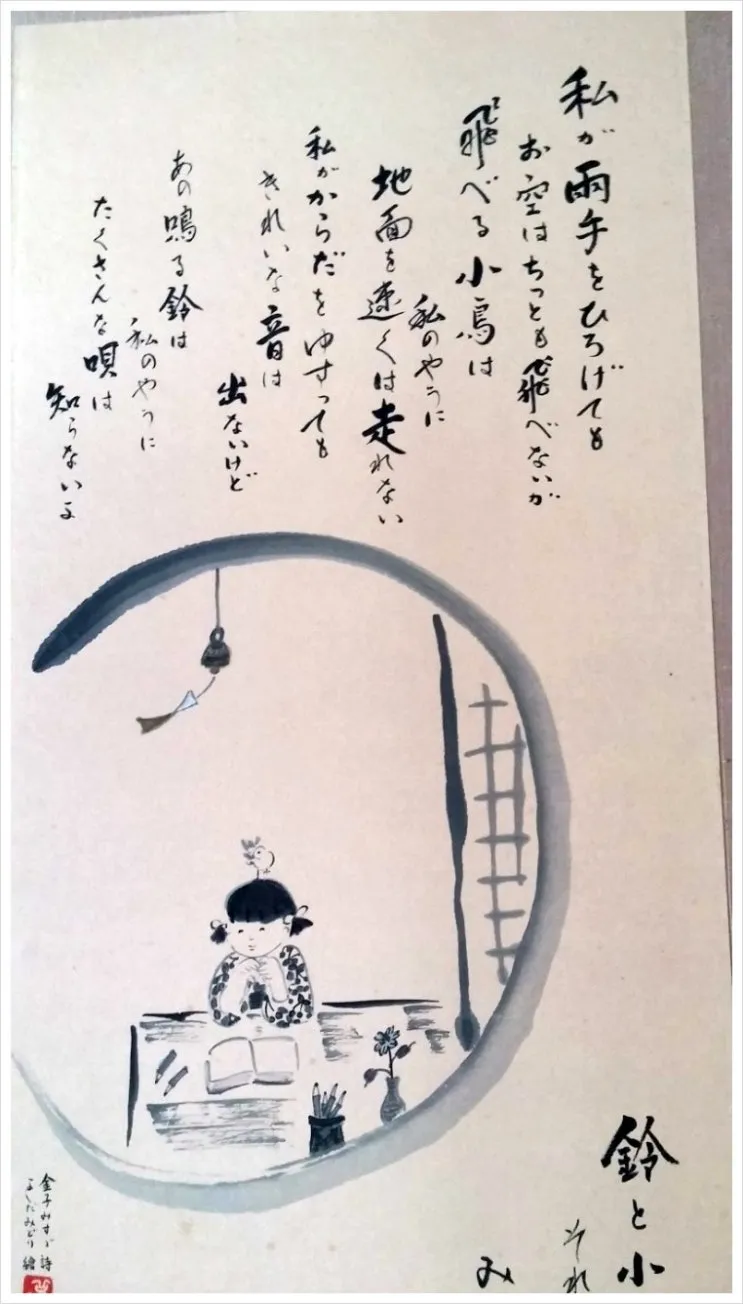 私が兩手をひろげても
お空はちっとも飛べないが
飛べる小鳥は
私のやうに
地面を速くは走れない
私がからだをゆすっても
きれいな音は
出ないけど
あの鳴る鈴は
私のやうに
たくさんな唄は
知らないよ
鈴と小
それ
み
金子みすゞ 詩
よしだみどり 繪